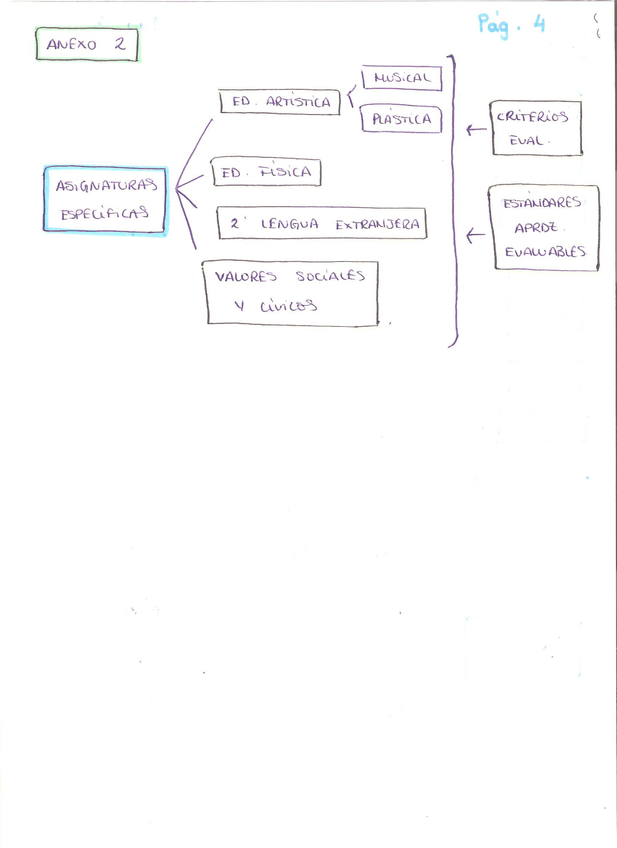 Pág. 4
ANEXO 2
MUSICAL
ED. ARTÍSTICA
PLÁSTICA
CRITERIOS
EVAL.
ED. FÍSICA
ASIGNATURAS
ESPECÍFICAS
2ª LENGUA EXTRANJERA
ESTÁNDARES
APRDZ.
EVALUABLES
VALORES SOCIALES
Y CÍVICOS